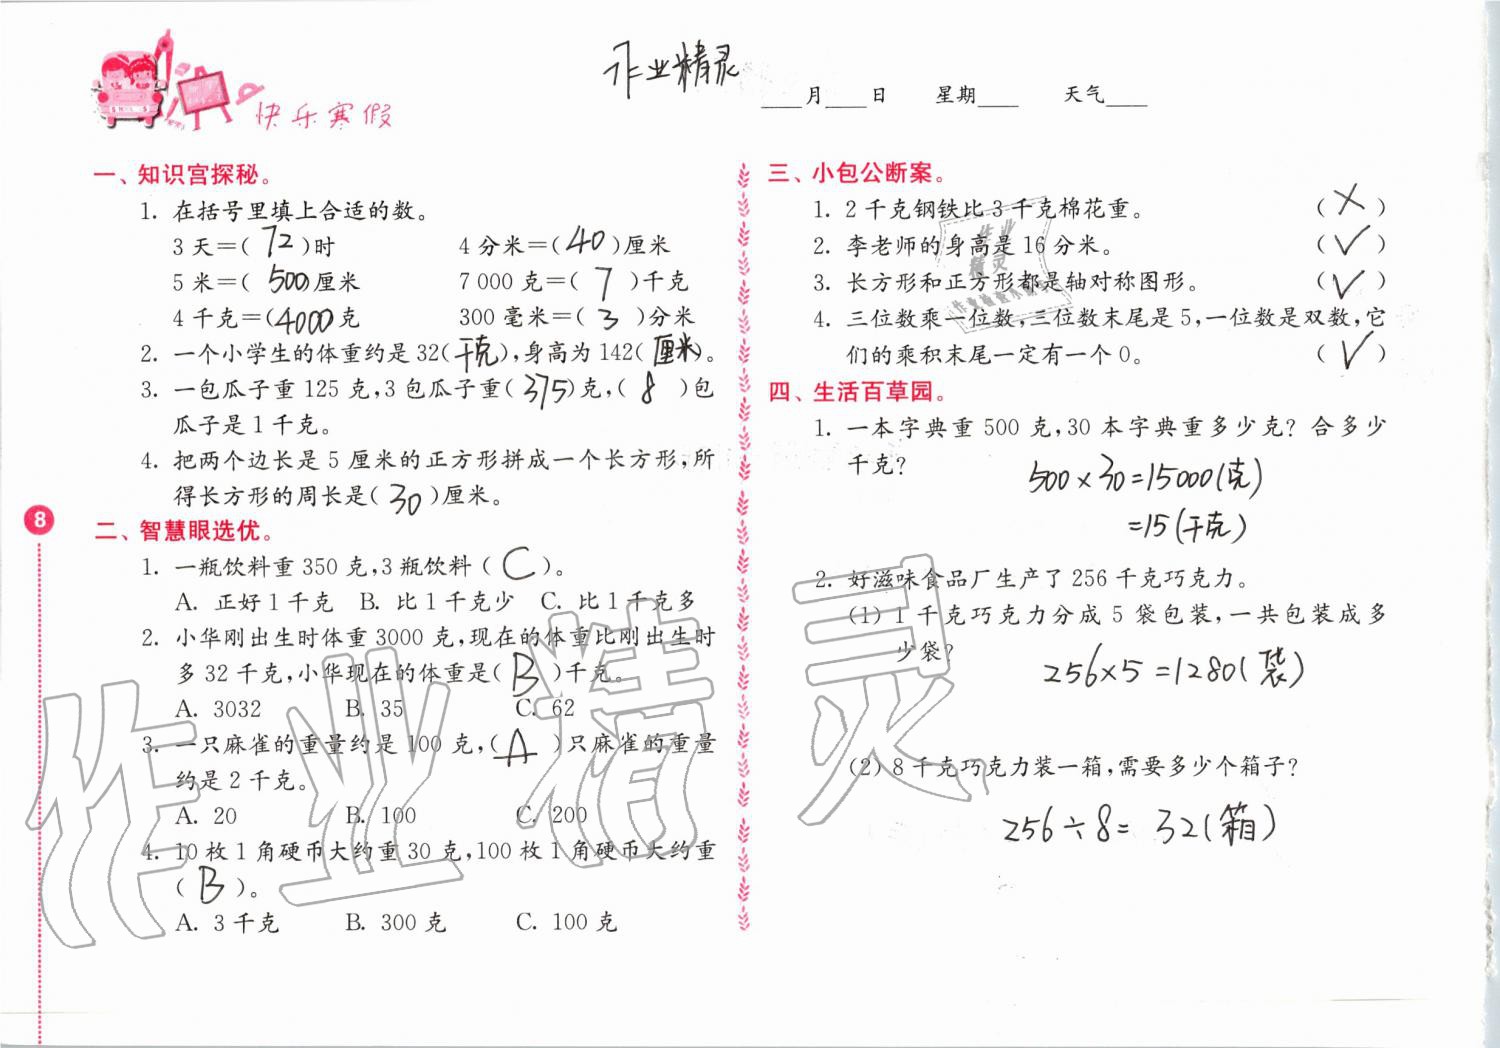 作业精灵
快乐寒假
____月____日 星期____ 天气____
一、知识宫探秘。
1. 在括号里填上合适的数。
3天=(72)时 4分米=(40)厘米
5米=(500厘米 7000克=(7)千克
4千克=(4000克 300毫米=(3)分米
2. 一个小学生的体重约是32(千克),身高为142(厘米)。
3. 一包瓜子重125克,3包瓜子重(375)克,(8)包
瓜子是1千克。
4. 把两个边长是5厘米的正方形拼成一个长方形,所
得长方形的周长是(30)厘米。
8
二、智慧眼选优。
1. 一瓶饮料重350克,3瓶饮料(C)。
A. 正好1千克 B. 比1千克少 C. 比1千克多
2. 小华刚出生时体重3000克,现在的体重比刚出生时
多32千克,小华现在的体重是(B)千克。
A. 3032 B. 35 C. 62
3. 一只麻雀的重量约是100克,(A)只麻雀的重量
约是2千克。
A. 20 B. 100 C. 200
4. 10枚1角硬币大约重30克,100枚1角硬币大约重
(B)。
A. 3千克 B. 300克 C. 100克
三、小包公断案。
1. 2千克钢铁比3千克棉花重。 (×)
2. 李老师的身高是16分米。 (√)
3. 长方形和正方形都是轴对称图形。 (√)
4. 三位数乘一位数,三位数末尾是5,一位数是双数,它
们的乘积末尾一定有一个0。 (√)
四、生活百草园。
1. 一本字典重500克,30本字典重多少克?合多少
千克?
500×30=15000(克)
=15(千克)
2. 好滋味食品厂生产了256千克巧克力。
(1) 1千克巧克力分成5袋包装,一共包装成多
少袋?
256×5=1280(袋)
(2) 8千克巧克力装一箱,需要多少个箱子?
256÷8=32(箱)
作业
精灵
作业精灵